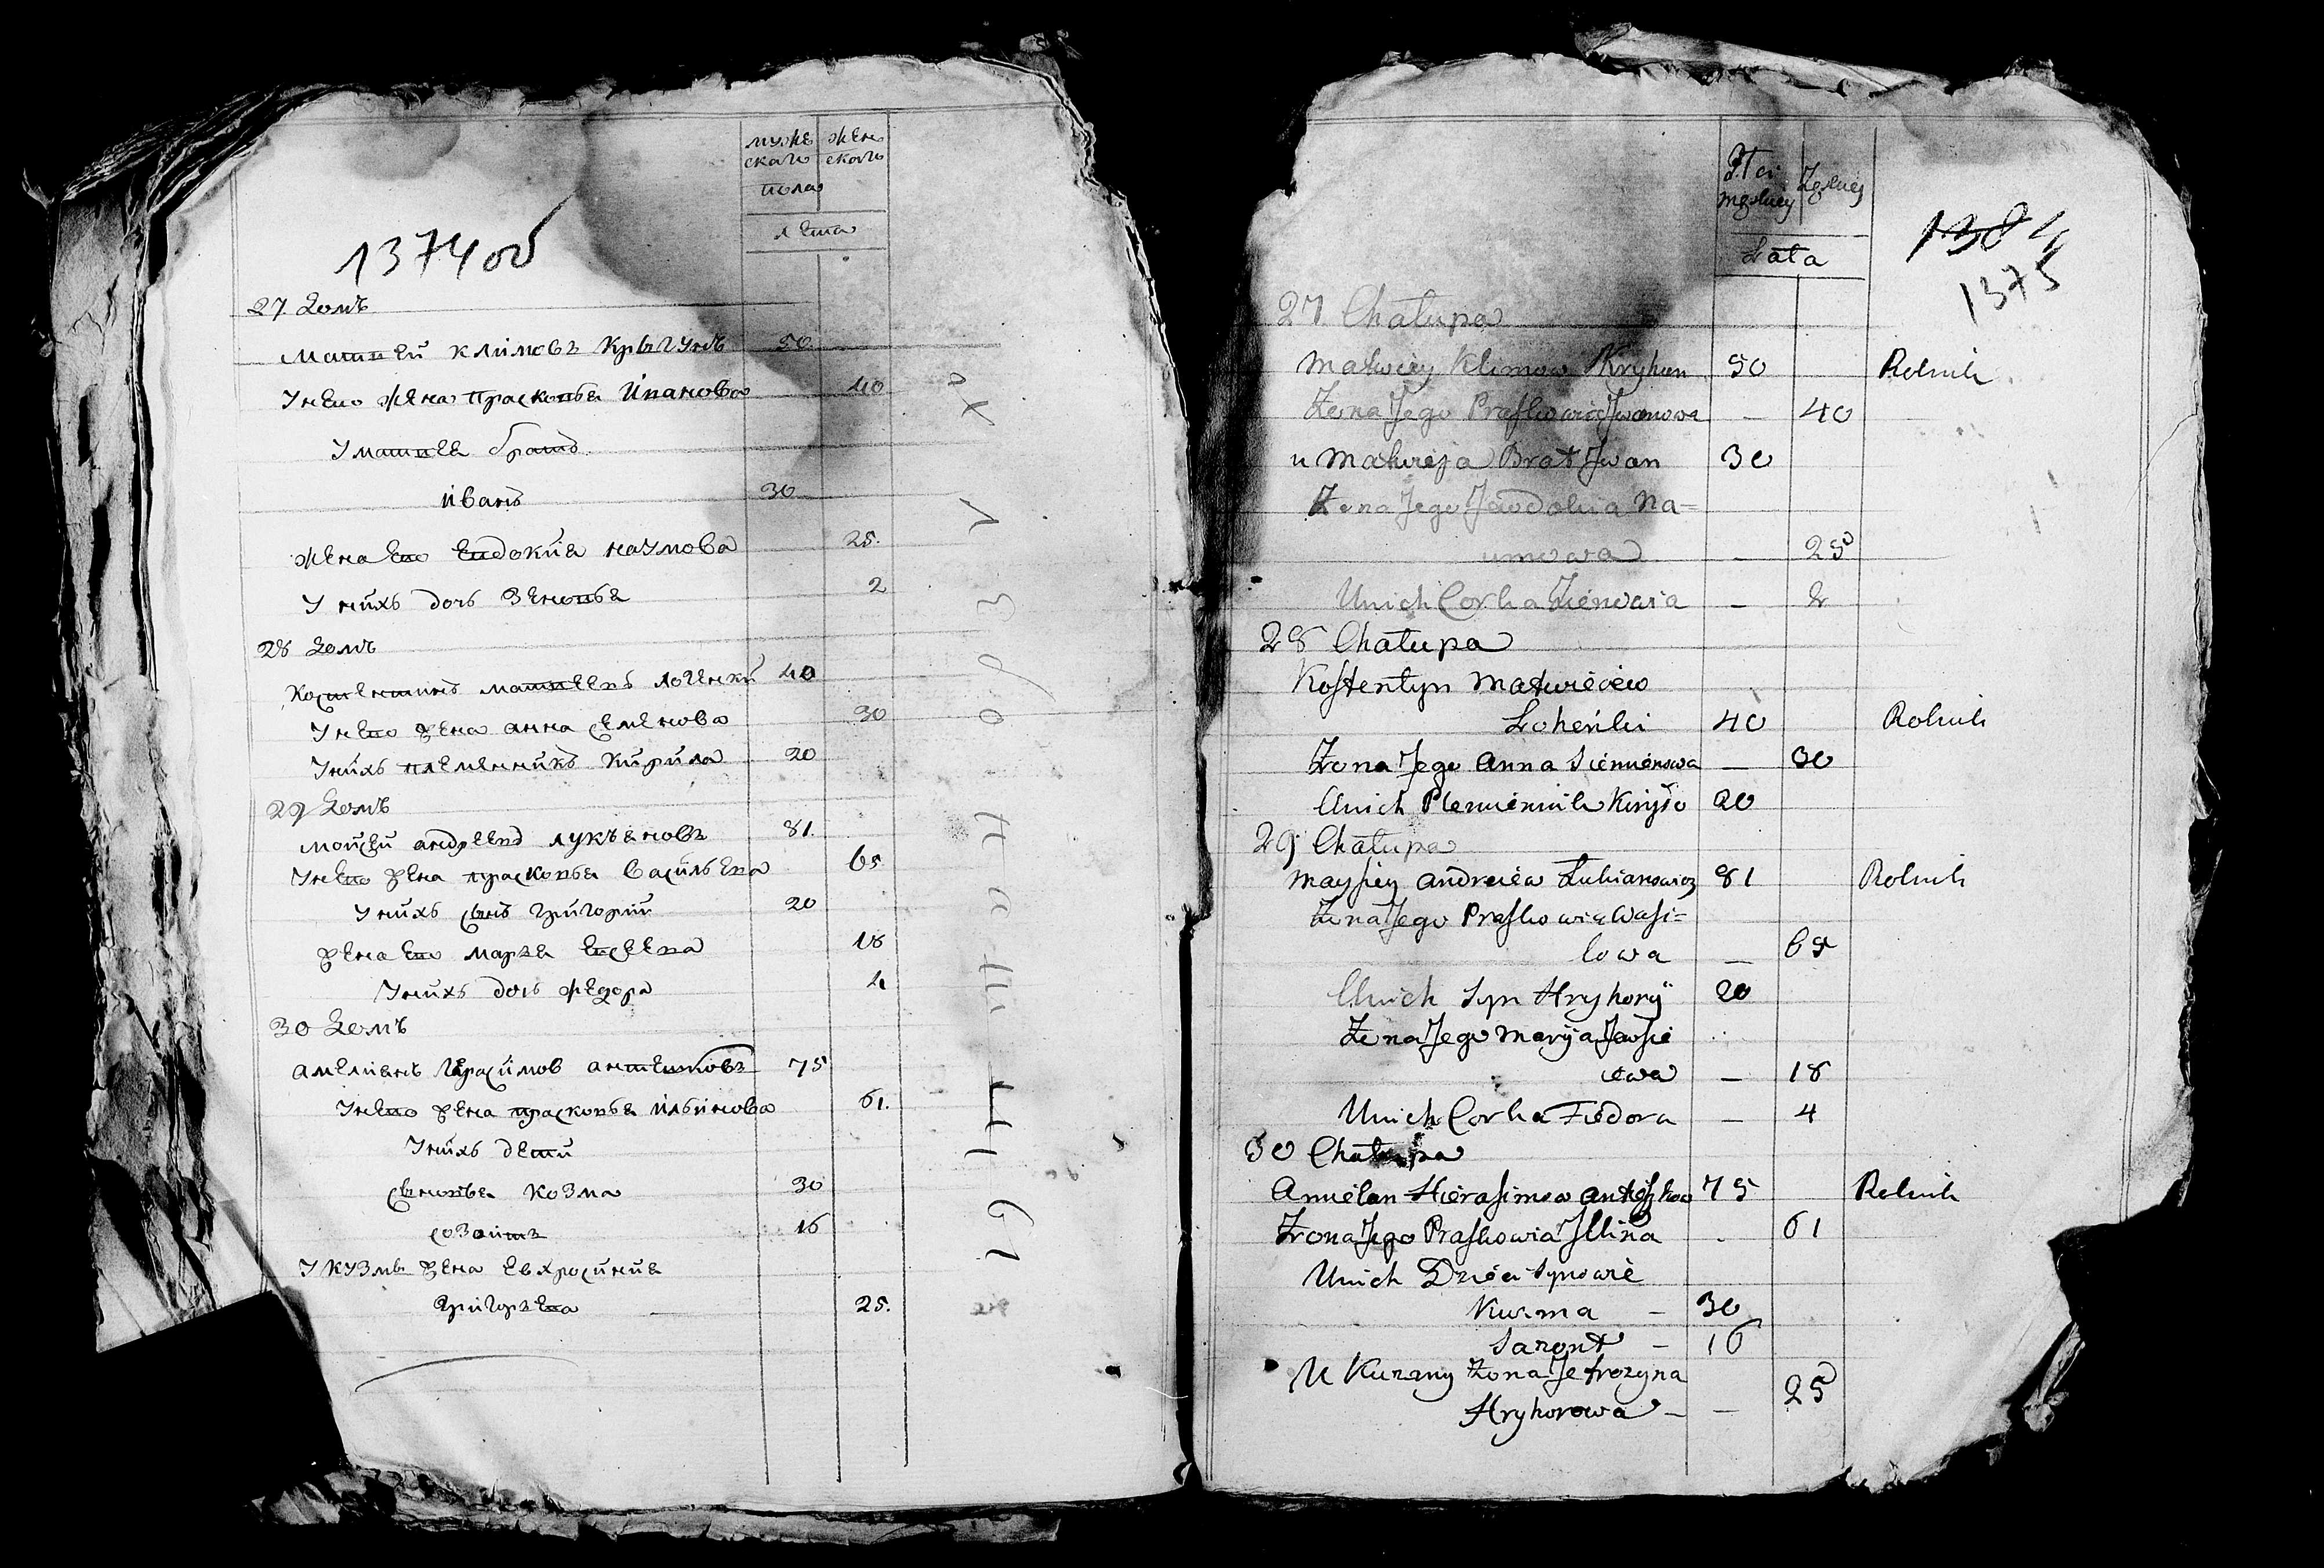 муже
скаго
пола
жен
скаго
лета
1374 об
27 Домъ
Матвей Климовъ Крыгунъ 50
У него жена Прасковья Иванова 40
У Матвея братъ
Иванъ 30
Жена его Евдокия Наумова 25.
У нихъ дочь Зеновья 2
28 Домъ
Костентинъ Матвеевъ Логенкий 40
У него жена Анна Семенова 30
У нихъ племенникъ Кирила 20
29 Домъ
Мойсей Андреевъ Лукъяновъ 81.
У него жена Прасковья Васильева 65
У нихъ сынъ Григорий 20
Жена его Марья Евсеева 18
У нихъ дочь Федора 4
30 Домъ
Амелиянъ Герасимов Антешковъ 75
У него жена Прасковья Ильинова 61.
У нихъ дети
Сыновья Козма 30
Созонтъ 16
У Кузмы жена Евхросиния
Григорьева 25.
Płci
męskiey
Żeńskiej
Lata
1384
1375
27 Chałupa
Matwiey Klimow Kryhun 50 Rolnik
Żona Jego Praskowia Jwanowa – 40
u Matwieja Brat Jwan 30
Żona Jego Jewdokia Na=
umowa – 25
Unich Corka Zienowia – 2
28 Chałupa
Kostentyn Matwieiew
Loheńki 40 Rolnik
Żona Jego Anna Siemienowa – 30
Unich Plemiennik Kiryło 20
29 Chałupa
Moysiey Andreiew Łukianowicz 81 Rolnik
Żona Jego Praskowia Wasi=
lowa – 65
Unich Syn Hryhory 20
Żona Jego Maryja Jewsie
iewa – 18
Unich Corka Fiedora – 4
30 Chałupa
Amielan Hierasimow Anteszkow 75 Rolnik
Żona Jego Praskowia Jllina 61
Unich Dzieci Synowie
Kuzma – 30
Sazont – 16
U Kuzmy Żona Jefrozyna
Hryhorowa – – 25